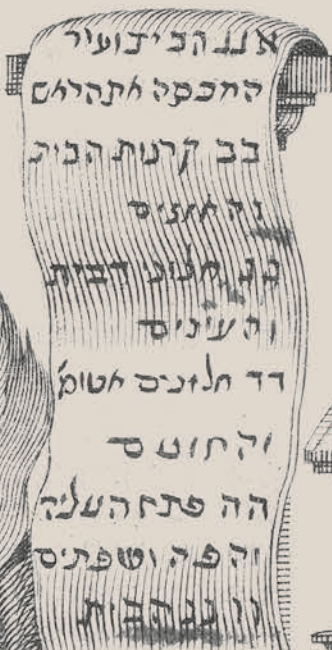 א גג הבית ושיער
המכסה את הראש
בב קרנות הבית
והאזנים
גג חלוני הבית
והעינים
דד חלונים אטומ'
והחוטם
הה פתח העליה
והפה ושפתים
וו גג הבית